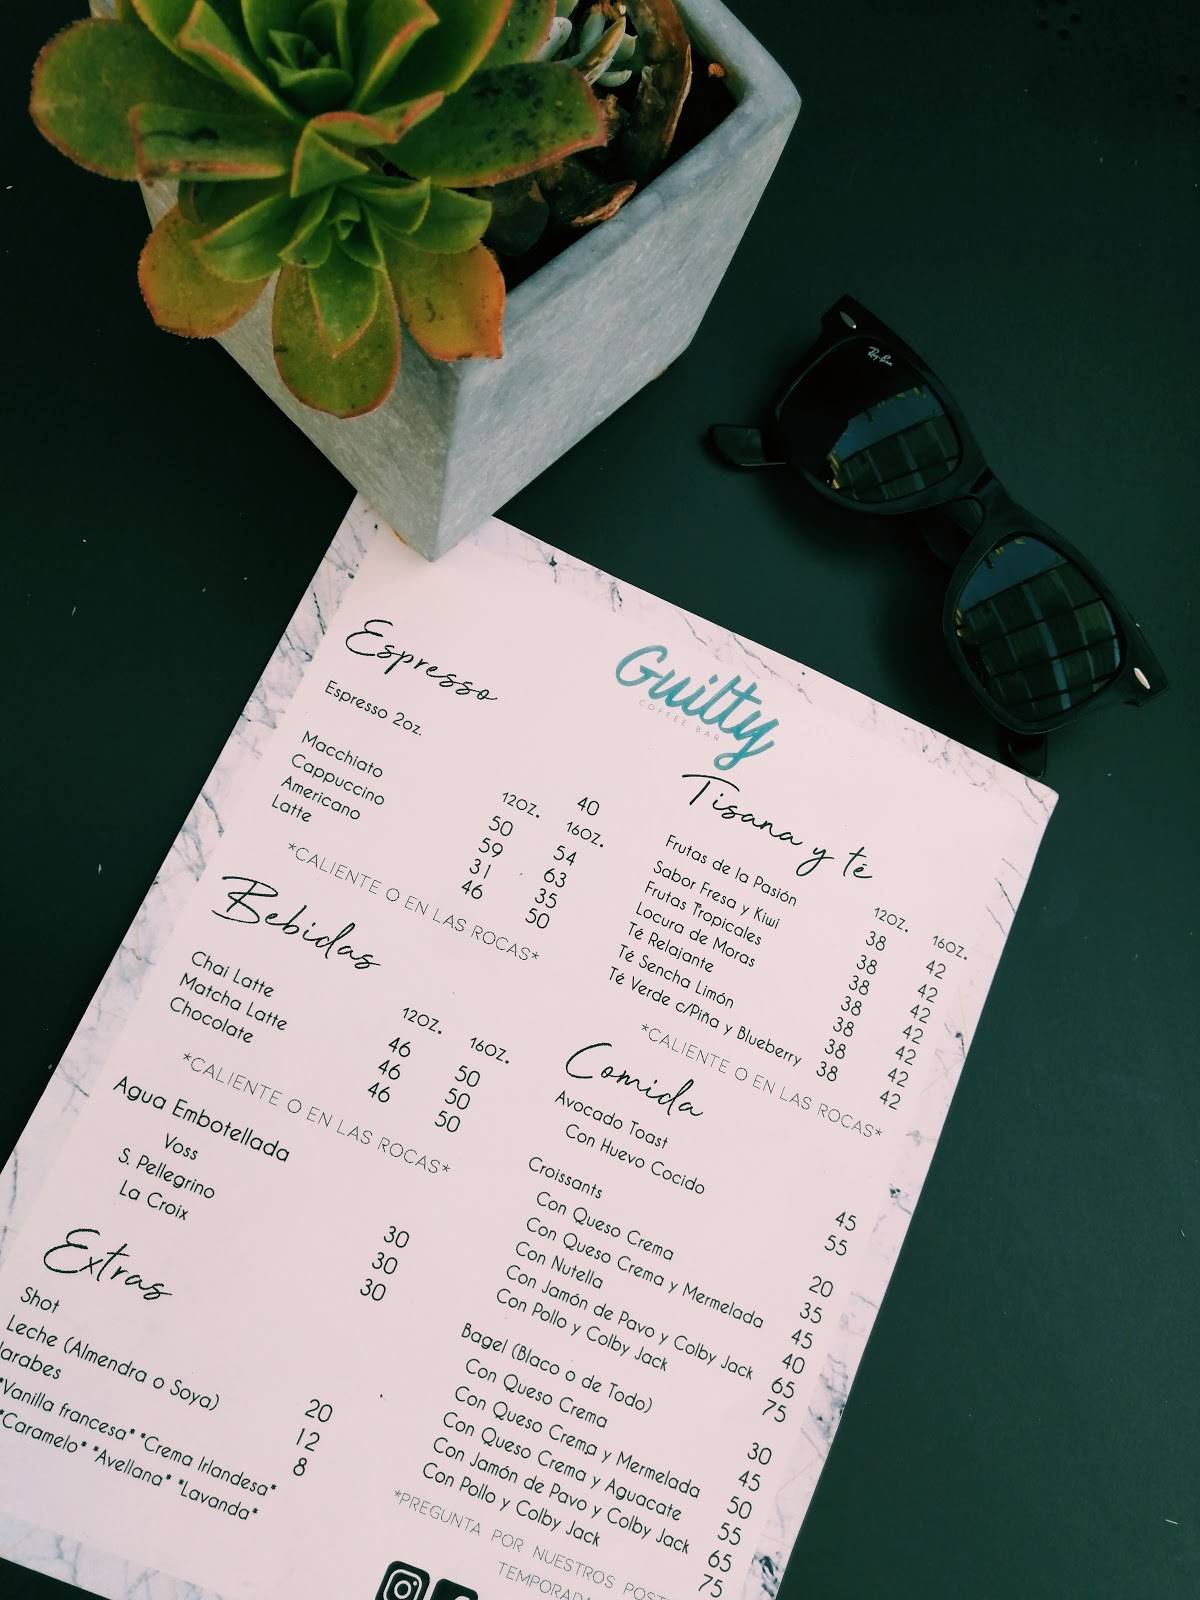 Ray-Ban
Guilty
COFFEE BAR
Espresso
Espresso 2oz. 40
12OZ. 16OZ.
Macchiato 50 54
Cappuccino 59 63
Americano 31 35
Latte 46 50
*CALIENTE O EN LAS ROCAS*
Bebidas
12OZ. 16OZ.
Chai Latte 46 50
Matcha Latte 46 50
Chocolate 46 50
*CALIENTE O EN LAS ROCAS*
Agua Embotellada
Voss 30
S. Pellegrino 30
La Croix 30
Extras
Shot 20
Leche (Almendra o Soya) 12
Jarabes 8
*Vanilla francesa* *Crema Irlandesa*
*Caramelo* *Avellana* *Lavanda*
Tisana y té
12OZ. 16OZ.
Frutas de la Pasión 38 42
Sabor Fresa y Kiwi 38 42
Frutas Tropicales 38 42
Locura de Moras 38 42
Té Relajante 38 42
Té Sencha Limón 38 42
Té Verde c/Piña y Blueberry 38 42
*CALIENTE O EN LAS ROCAS*
Comida
Avocado Toast 45
Con Huevo Cocido 55
Croissants 20
Con Queso Crema 35
Con Queso Crema y Mermelada 45
Con Nutella 40
Con Jamón de Pavo y Colby Jack 65
Con Pollo y Colby Jack 75
Bagel (Blaco o de Todo) 30
Con Queso Crema 45
Con Queso Crema y Mermelada 50
Con Queso Crema y Aguacate 55
Con Jamón de Pavo y Colby Jack 65
Con Pollo y Colby Jack 75
*PREGUNTA POR NUESTROS POST
TEMPORADA